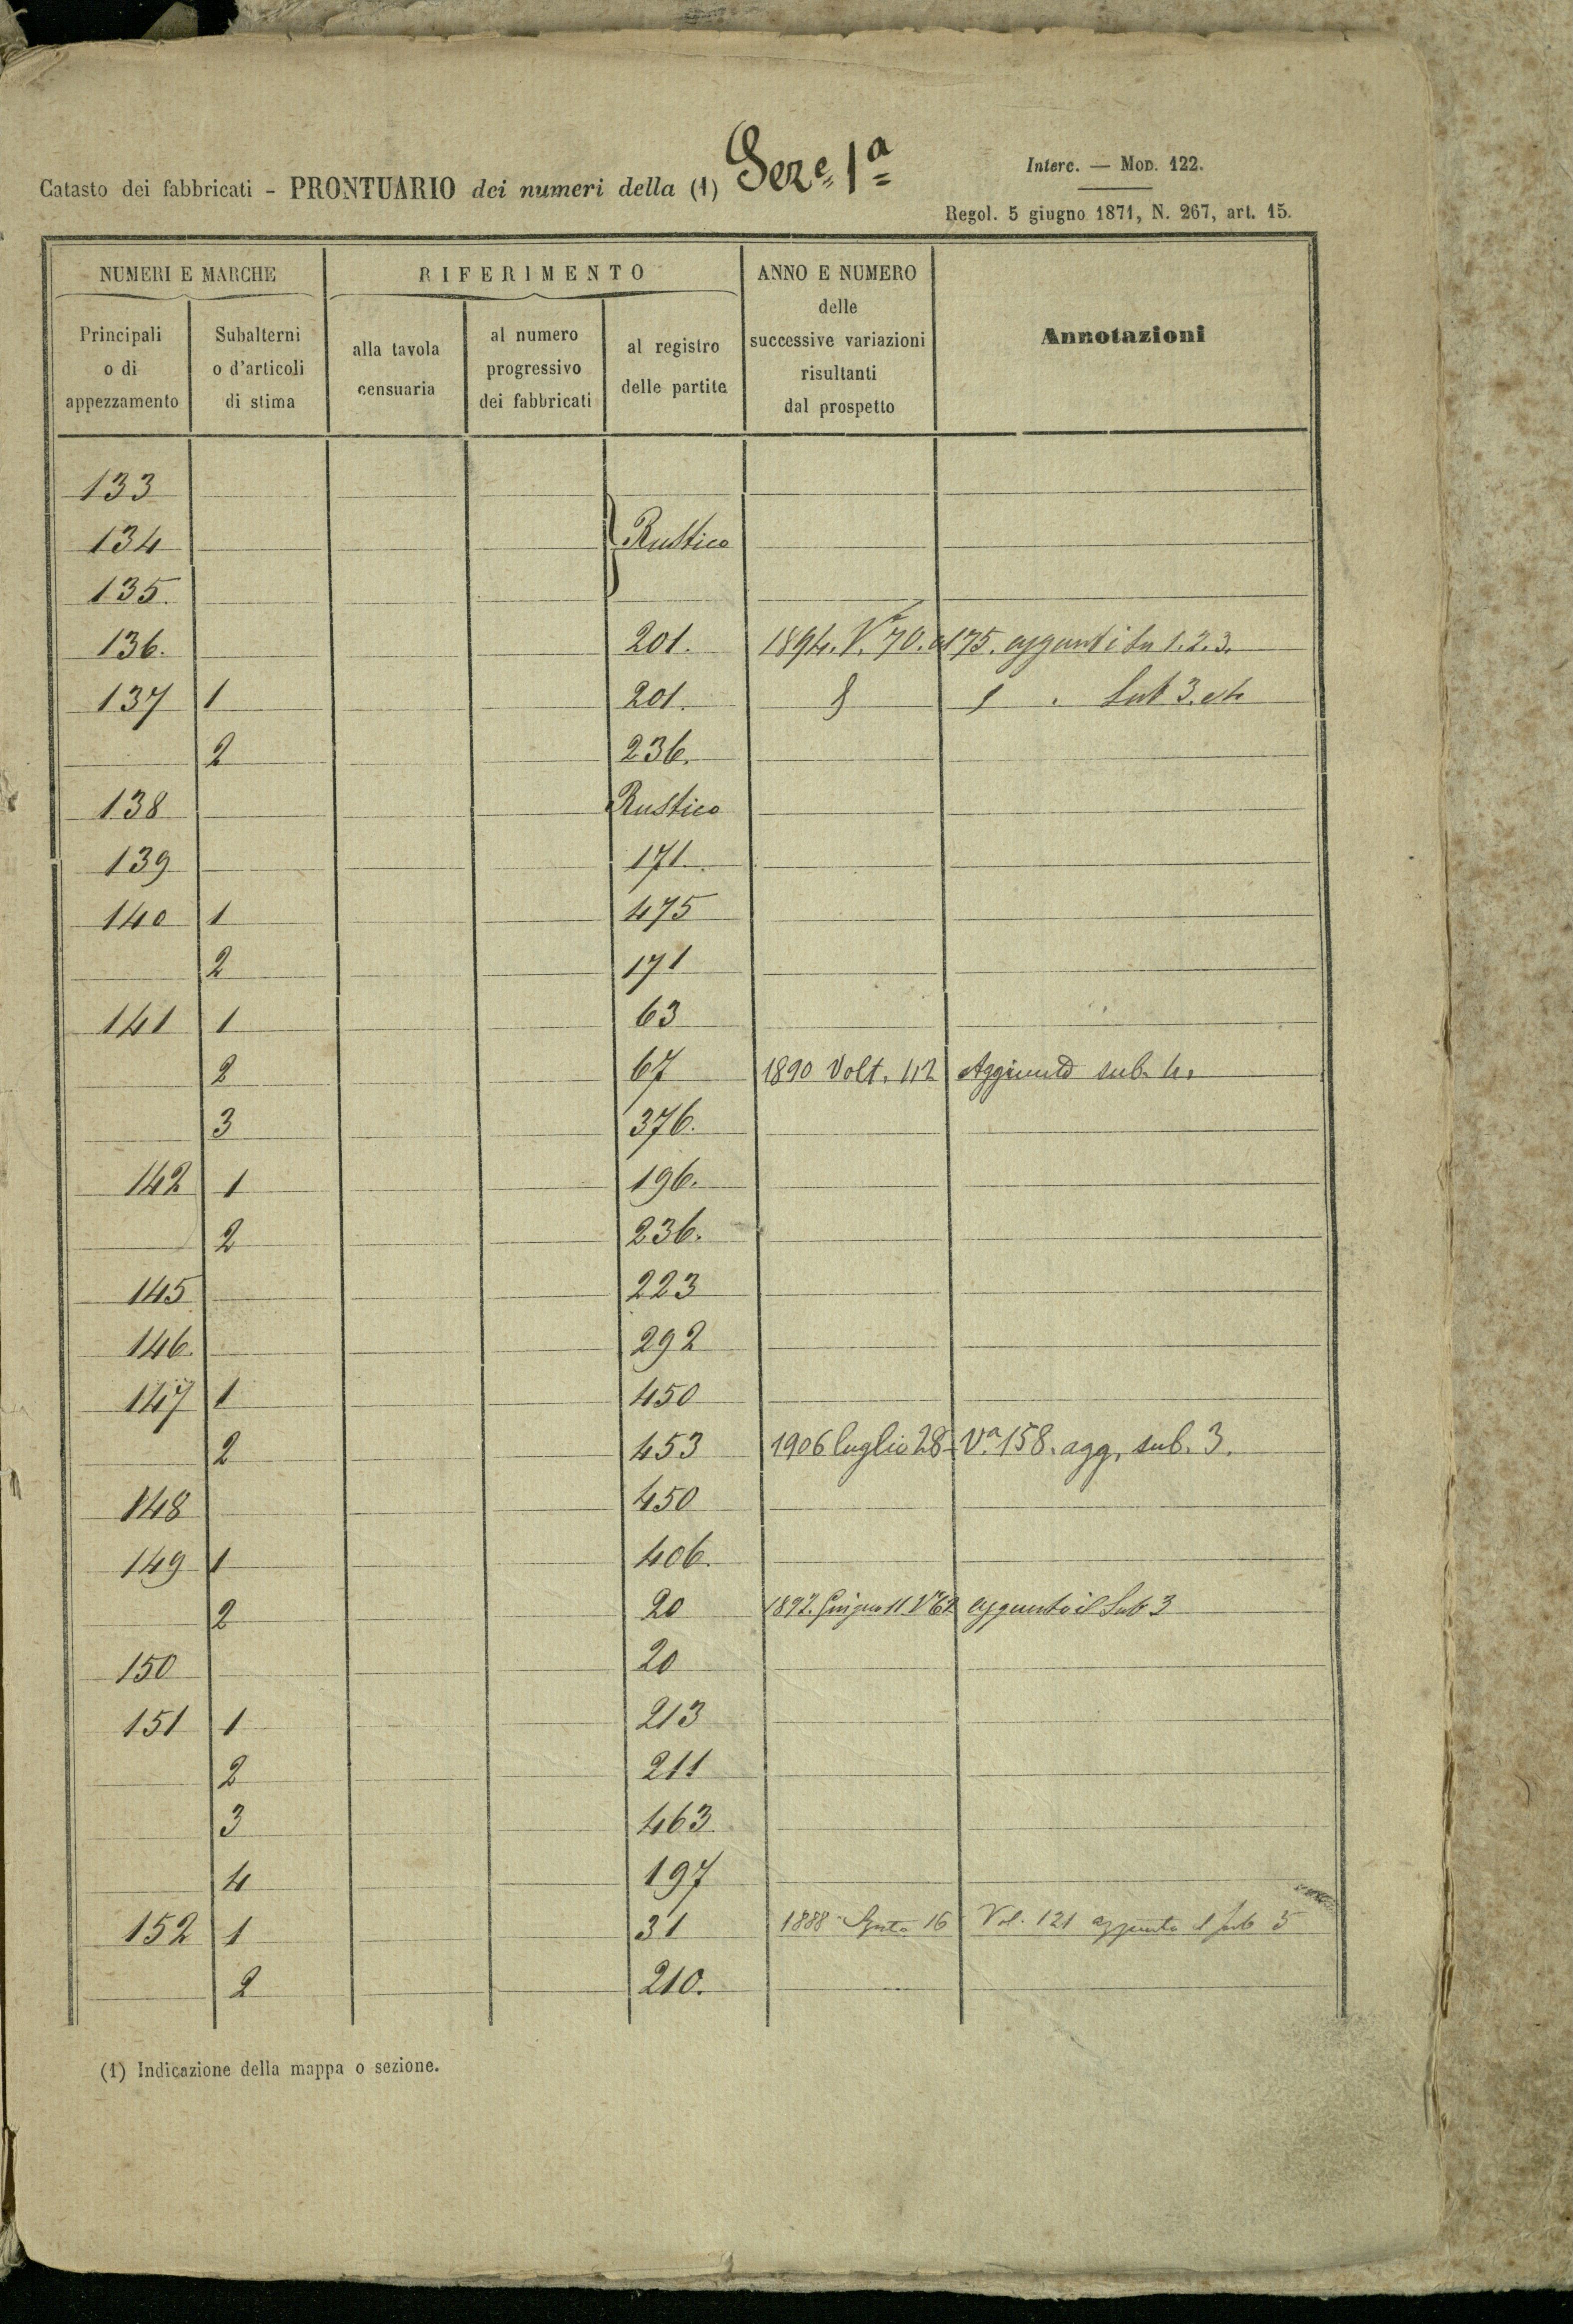 Catasto dei fabbricati - PRONTUARIO dei numeri della (1) Sez.e 1a
Interc. — Mod. 122.
Regol. 5 giugno 1871, N. 267, art. 15.
NUMERI E MARCHE
RIFERIMENTO
ANNO E NUMERO
delle
successive variazioni
risultanti
dal prospetto
Annotazioni
Principali
o di
appezzamento
Subalterni
o d'articoli
di stima
alla tavola
censuaria
al numero
progressivo
dei fabbricati
al registro
delle partite
133
134 } Rustico
135.
136. 201. 1894. V. 70. 175. Sub 1. 2. 3.
137 1 201. Sub 3.
2 236.
138 Rustico
139 171
140 1 475
2 171
141 1 63
2 67 1890 Volt. 112 Aggiunto sub. 4.
3 376.
142 1 196.
2 236.
145 223
146. 292
147 1 450
2 453 1906 luglio 28 - V.a 158. agg. sub. 3.
148 450
149 1 406.
2 20 Giugno 11 Va 62 aggiunto il Sub 3
150 20
151 1 213
2 211
3 463
4 197
152 1 31 1888 16 Vol. 121 aggiunto il sub 5
2 210.
(1) Indicazione della mappa o sezione.